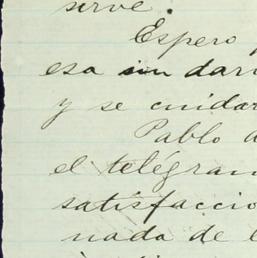 sirve.
Espero
esa sin dar
y se cuidar
Pablo
el telégram
satisfaccio
nada de